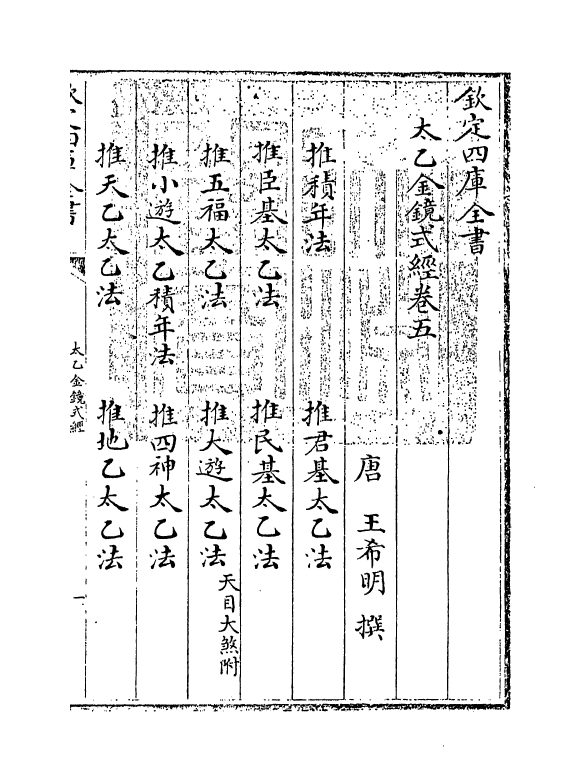 欽定四庫全書
太乙金鏡式經卷五
唐 王希明 撰
推積年法 推君基太乙法
推臣基太乙法 推民基太乙法
推五福太乙法 推大遊太乙法 天目大煞附
推小遊太乙積年法 推四神太乙法
推天乙太乙法 推地乙太乙法
太乙金鏡式經
一